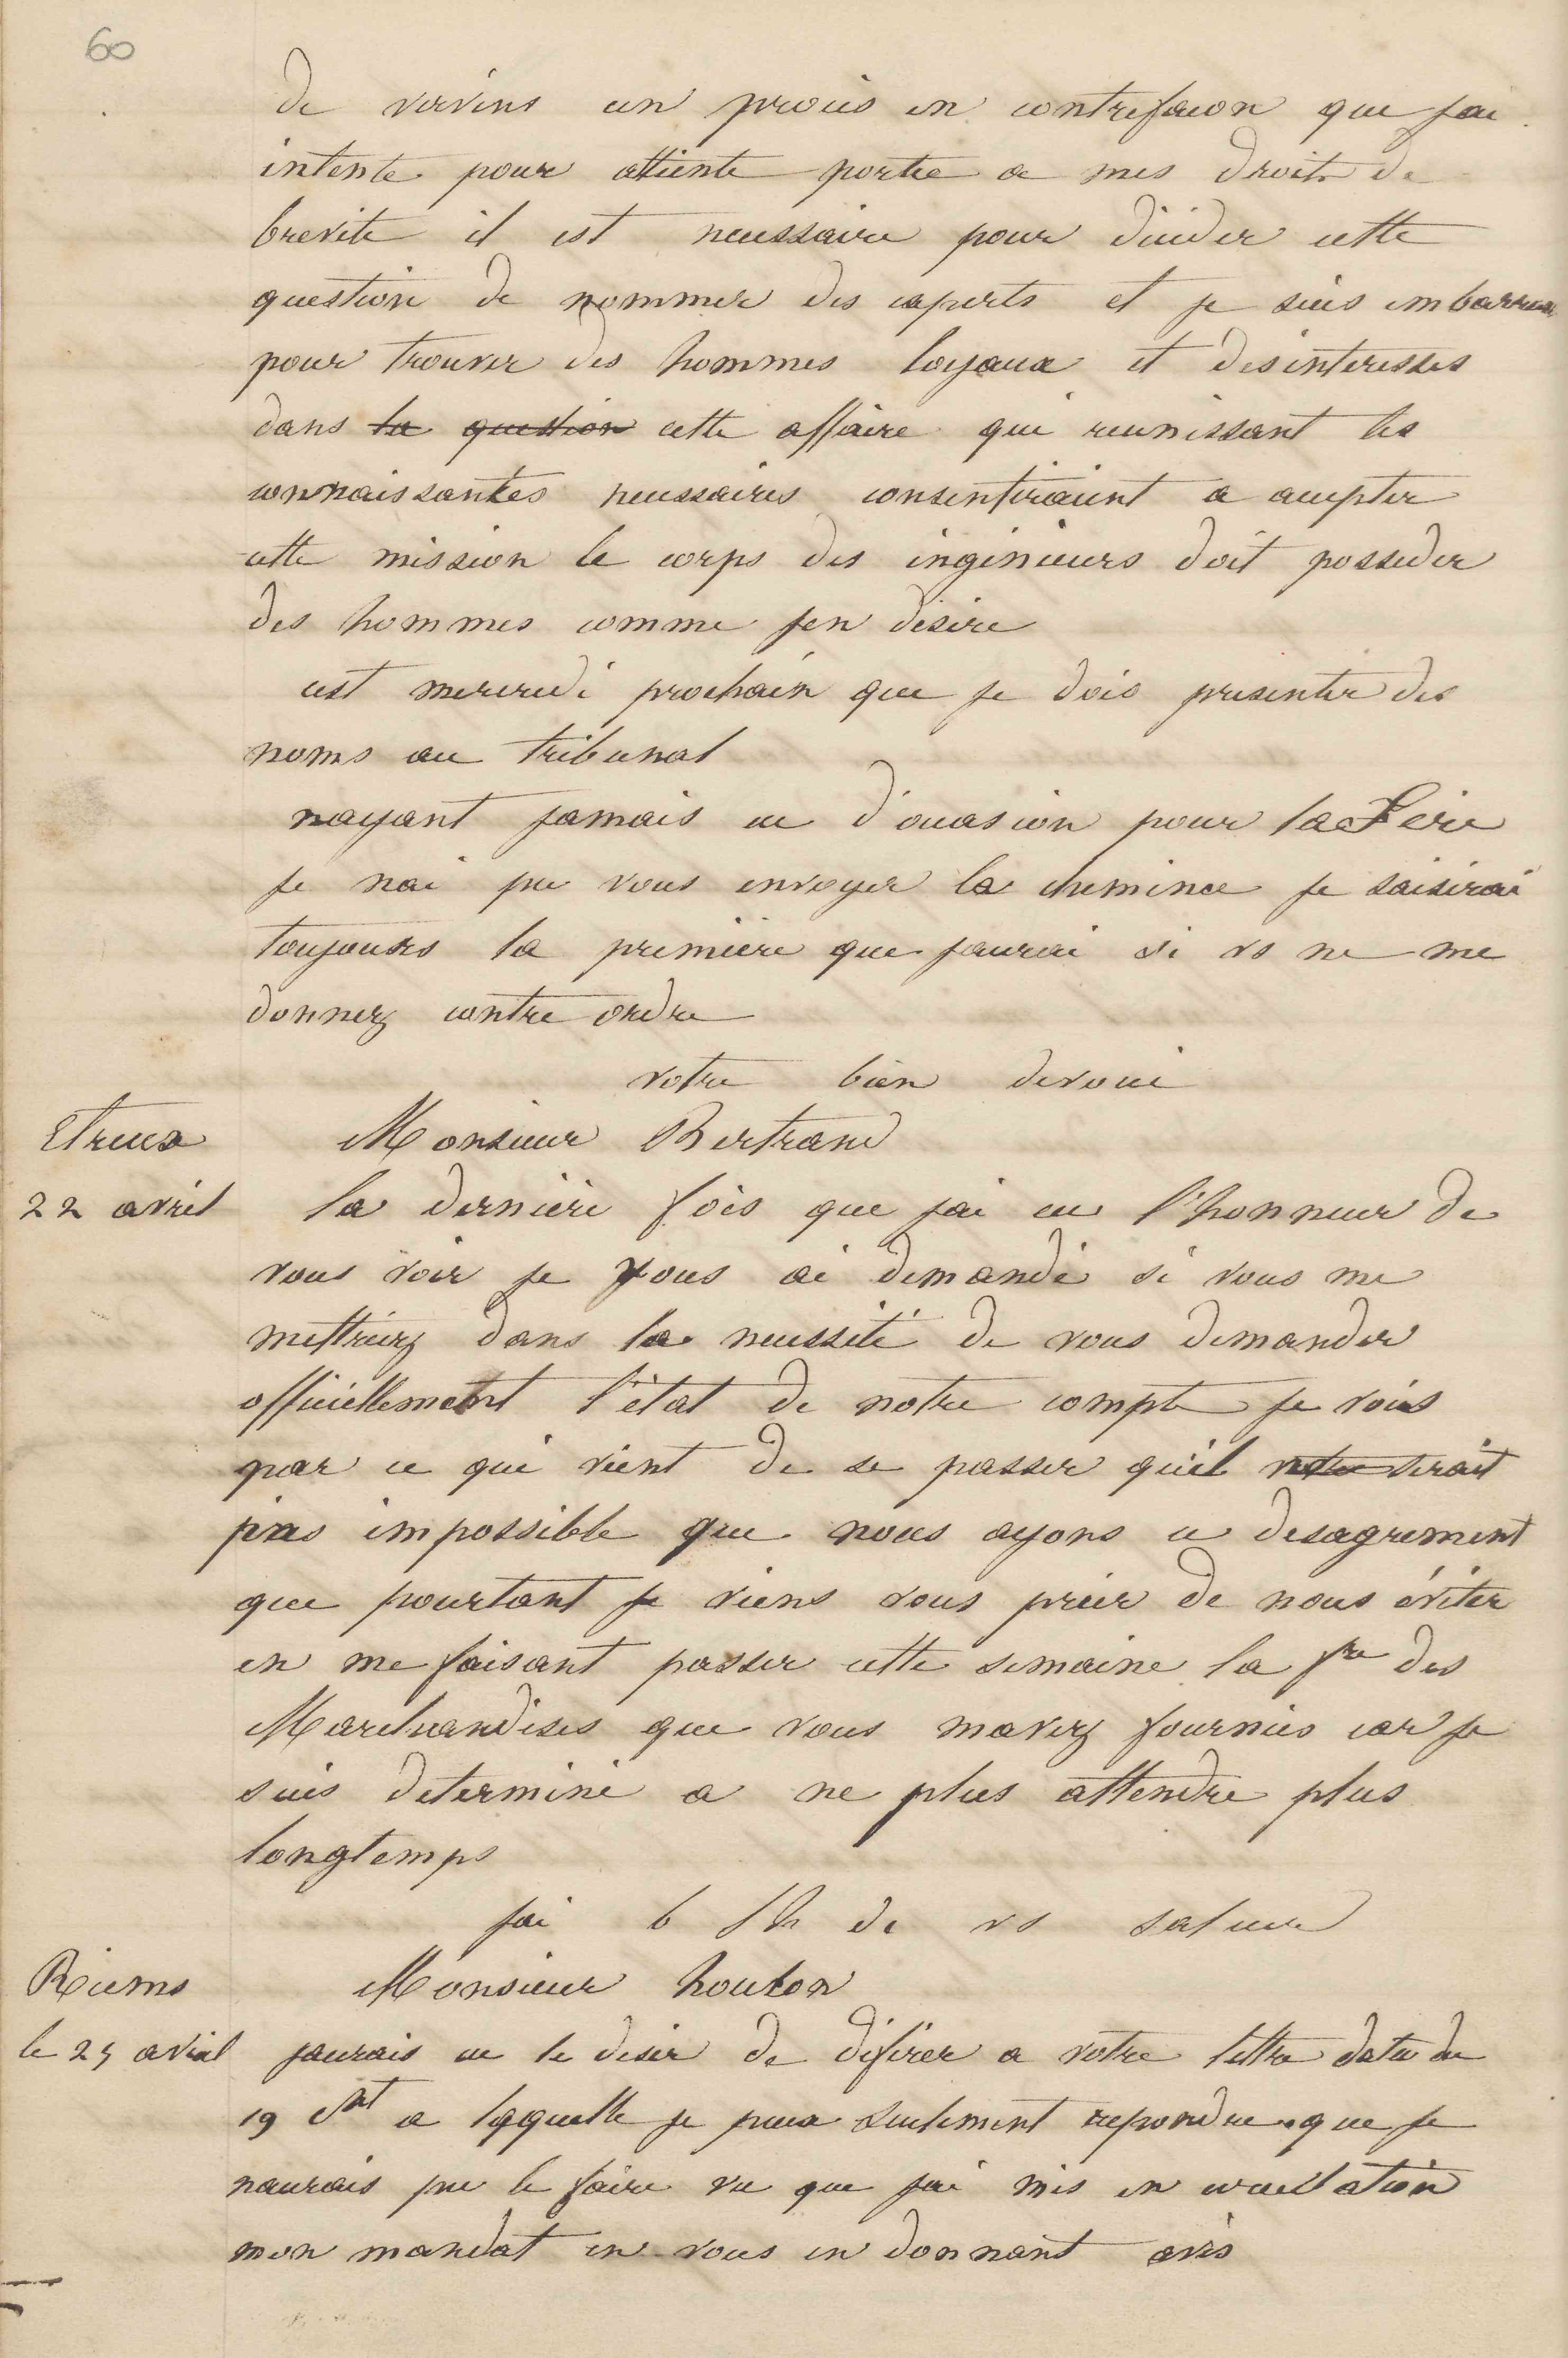 60
de vervins un procès en contrefacon que jai
intente pour atteinte portee a mes droits de
brevete il est necessaire pour decider cette
question de nommer des experts et je suis embarrasse
pour trouver des hommes loyaux et desinteresses
dans la question cette affaire qui reunissant les
connaissantes necessaires consentiraient a accepter
cette mission le corps des ingenieurs doit posseder
des hommes comme jen desire
cest mercredi prochain que je dois presenter des
noms au tribunal
nayant jamais eu d'occasion pour la Fère
je nai pu vous envoyer la cheminee je saisirai
toujours la premiere que jaurai si vs ne me
donnez contre ordre
votre bien devoué
Etreux Monsieur Bertrand
22 avril la derniere fois que jai eu l'honneur de
vous voir je vous ai demandé si vous me
mettriez dans la necessité de vous demander
officiellement l'état de notre compte je vois
par ce qui vient de se passer quil serait
pas impossible que nous ayons ce desagrement
que pourtant je viens vous prier de nous éviter
en me faisant passer cette semaine la fre des
Marchandises que vous mavez fournies car je
suis determiné a ne plus attendre plus
longtemps
jai b lh de vs saluer
Reims Monsieur houton
le 25 avril jaurais eu le desir de déférer a votre lettre datee du
19 ct a laquelle je peux seulement repondre que je
naurais pu le faire vu que jai mis en circulation
mon mandat en vous en donnant avis